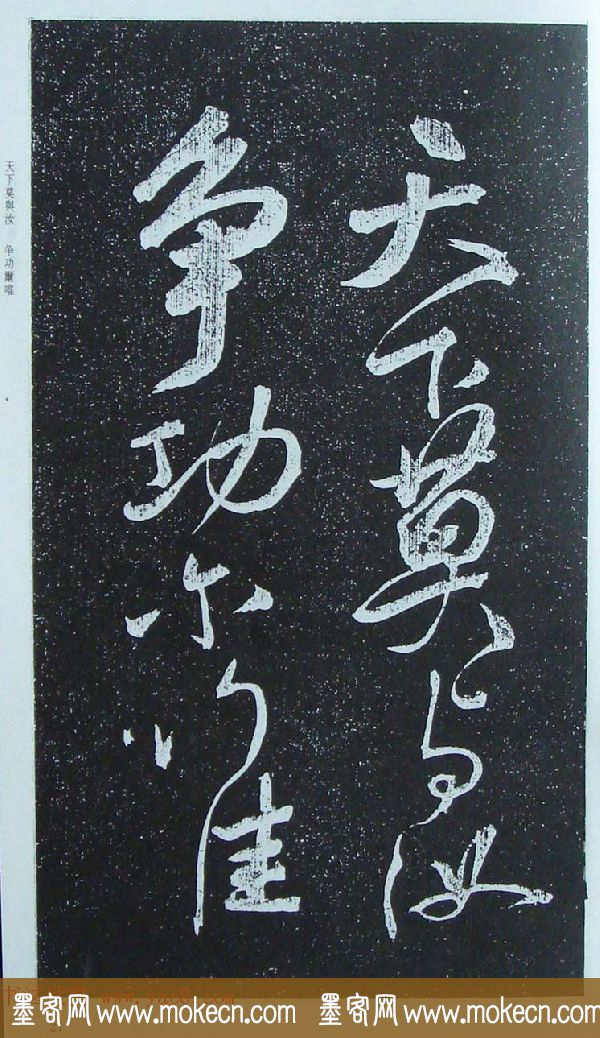 天下莫与汝
争功尔唯
天下莫與汝 争功爾唯
墨客网 www.mokecn.com 墨客网 www.mokecn.com